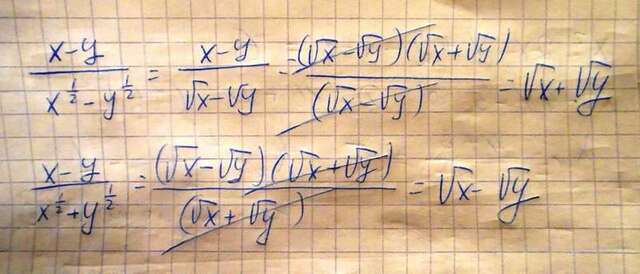 (x-y)/(x^(1/2)-y^(1/2)) = (x-y)/(√x-√y) = ((√x-√y)(√x+√y))/((√x-√y)) = √x+√y
(x-y)/(x^(1/2)+y^(1/2)) = ((√x-√y)(√x+√y))/((√x+√y)) = √x-√y